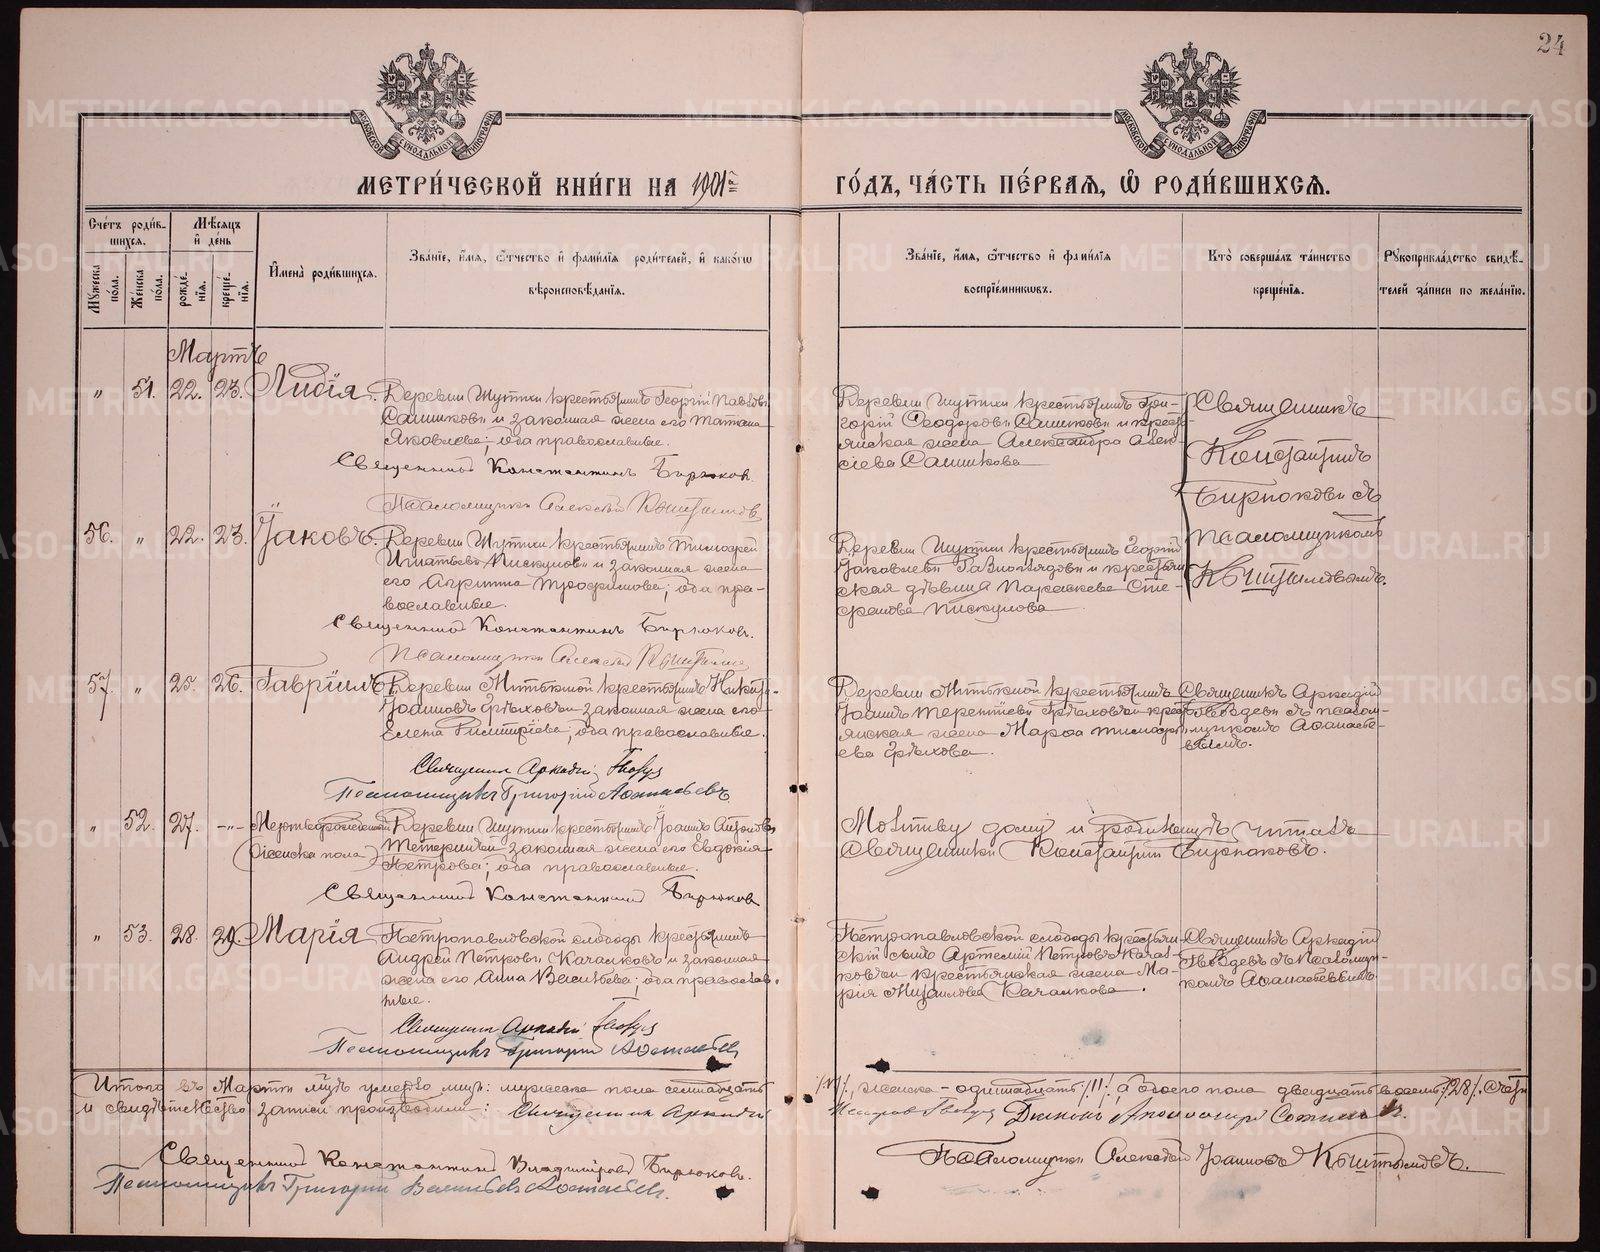 24
МОСКОВСКОЙ СѴНОДАЛЬНОЙ ТИПОГРАФІИ
МОСКОВСКОЙ СѴНОДАЛЬНОЙ ТИПОГРАФІИ
МЕТРИ́ЧЕСКОЙ КНИ́ГИ НА 1901й
ГО́ДЪ, ЧА́СТЬ ПЕ́РВАЯ, Ѿ РОДИ́ВШИХСЯ.
Сче́тъ роди́в-
шихся.
Мѣ́сяцъ
и҆ де́нь
Мꙋжеска по́ла.
Же́нска по́ла.
рожде́нїя.
креще́нїя.
И҆мена̀ роди́вшихся.
Зва́нїе, и҆́мя, ѻ҆́тчество и҆ фами́лїя роди́телей, и҆ како́гѡ
вѣроисповѣ́данїя.
Зва́нїе, и҆́мя, ѻ҆́тчество и҆ фами́лїя
воспрїе́мникѡвъ.
Кто̀ соверша́лъ та́инство
креще́нїя.
Рꙋкоприкла́дство свидѣ́-
телей за́писи по жела́нїю.
Мартъ
" 51. 22. 23. Лидія. Деревни Шутки крестьянинъ Георгій Павловъ
Санниковъ и законная жена его Татіана
Яковлева; оба православные.
Священникъ Константинъ Бирюковъ.
Псаломщикъ Алексѣй Кыштымовъ
Деревни Шутки крестьянинъ Гри-
горій Ѳеодоровъ Санниковъ и кресть-
янская жена Александра Алек-
сіева Санникова
Священникъ
Константинъ
Бирюковъ съ
псаломщикомъ
Кыштымовымъ.
56. " 22. 23. Іаковъ. Деревни Шутки крестьянинъ Тимоѳей
Игнатьевъ Пискуновъ и законная жена
его Агриппина Трофимова; оба пра-
вославные.
Священникъ Константинъ Бирюковъ.
Псаломщикъ Алексѣй Кыштымовъ
Деревни Шутки крестьянинъ Георгій
Іаковлевъ и крестьян-
ская дѣвица Параскева Сте-
фанова Пискунова
57. " 25. 26. Гавріилъ Деревни крестьянинъ Никита
Іоанновъ Грѣховъ и законная жена его
Елена Димитріева; оба православные.
Священникъ Аркадій Гвоздевъ
Псаломщикъ Григорій Аѳанасьевъ
Деревни крестьянинъ
Іоаннъ Терентіевъ Грѣховъ и крест-
янская жена Марѳа Тимоѳе-
ева Грѣхова.
Священникъ Аркадій
Гвоздевъ съ псалом-
щикомъ Аѳанасье-
вымъ.
" 52. 27. -"- Мертворожденный Деревни Шутки крестьянинъ Іоаннъ
(женска пола) законная жена его Евдокія
Петрова; оба православные.
Священникъ Константинъ Бирюковъ
Молитву дому и родильницѣ читалъ
Священникъ Константинъ Бирюковъ.
" 53. 28. 29. Марія Петропавловской слободы крестьянинъ
Андрей Петровъ Качалковъ и законная
жена его Анна Васильева; оба православ-
ные.
Священникъ Аркадій Гвоздевъ
Псаломщикъ Григорій Аѳанасьевъ
Петропавловской слободы крестьян-
скій сынъ Артемій Петровъ Качал-
ковъ и крестьянская жена Ма-
рія Михаилова Качалкова.
Священникъ Аркадій
Гвоздевъ съ псаломщи-
комъ Аѳанасьевымъ
Итого въ Мартѣ мужеска пола семнадцать /17/, женска - одиннадцать /11/, а обоего пола двадцать восемь /28/.
и свидѣтельство записи производили: Священникъ Аркадій Гвоздевъ Діаконъ
Священникъ Константинъ Владиміровъ Бирюковъ.
Псаломщикъ Алексѣй Іоанновъ Кыштымовъ.
Псаломщикъ Григорій Васильевъ Аѳанасьевъ.
METRIKI.GASO-URAL.RU